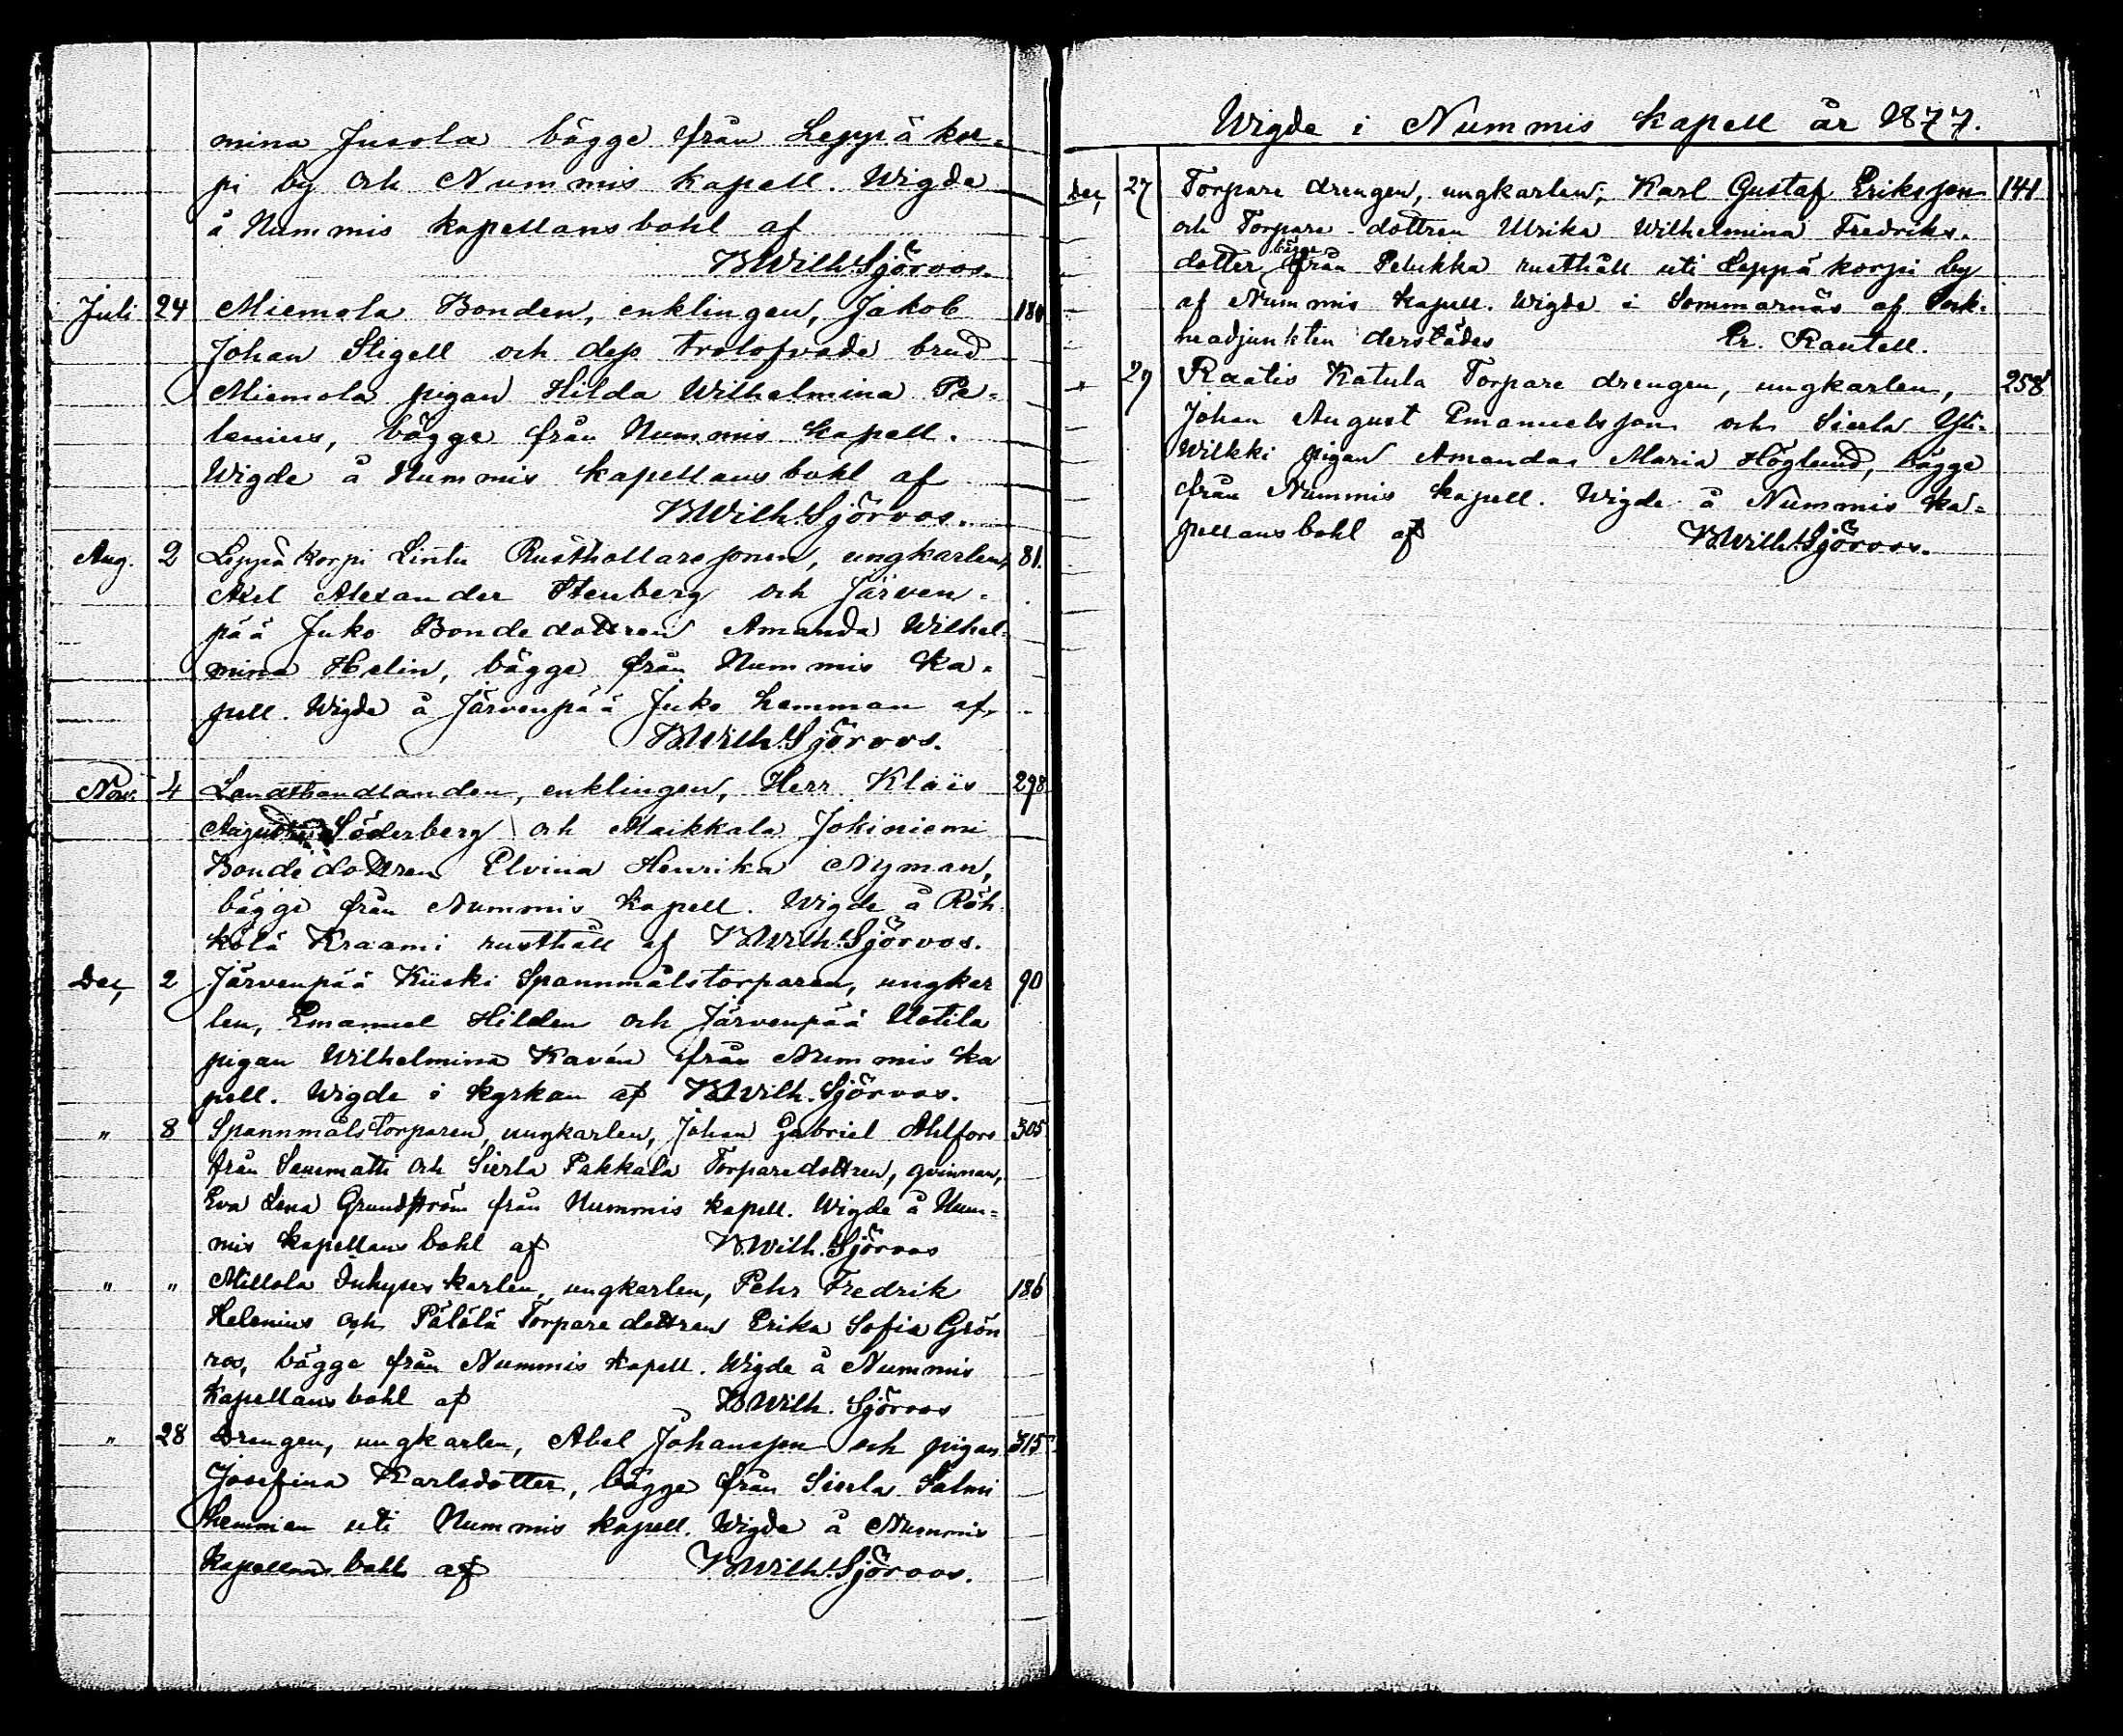 mina Jusola bägge från Leppäkor-
pi by och Nummis kapell. Wigde
å Nummis kapellansbohl af
BWilh. Sjöroos.
Juli 24 Miemola Bonden, enklingen, Jakob 180
Johan Stigell och dess trolofvade brud
Miemola pigan Hilda Wilhelmina Pe-
lenius, bägge från Nummis kapell.
Wigde å Nummis kapellansbohl af
BWilh. Sjöroos.
Aug. 2 Leppäkorpi Lintu Rusthollaresonen, ungkarlen, 81.
Axel Alexander Stenberg och Järven-
pää Juko Bondedottren Amanda Wilhel-
mina Helin, bägge från Nummis ka-
pell. Wigde å Järvenpää Juko hemman af
BWilh. Sjöroos.
Nov. 4 Landthandlanden, enklingen, Herr Klais 298
Söderberg och Maikkala Jokiniemi
Bondedottren Elvina Henrika Nyman,
bägge från Nummis kapell. Wigde å Röh-
kölä Kraami rusthåll af BWilh. Sjöroos.
Dec, 2 Järvenpää Kiiski Spannmålstorparen, ungkar 90
len, Emanuel Hilden och Järvenpää Uotila
pigan Wilhelmina Kavén från Nummis ka
pell. Wigde i kyrkan af BWilh. Sjöroos.
" 8 Spannmålstorparen, ungkarlen, Johan Gabriel Ahlfors 305
från Sammatti och Sierla Pakkala Torparedottren, qvinnan,
Eva Lena Grundström från Nummis kapell. Wigde å Num-
mis kapellansbohl af BWilh. Sjöroos
" " Millola Inhyseskarlen, ungkarlen, Pehr Fredrik 186
Helenius och Pälölä Torparedottren Erika Sofia Grön
ros, bägge från Nummis kapell. Wigde å Nummis
kapellansbohl af BWilh. Sjöroos
" 28 Drengen, ungkarlen, Abel Johansson och pigan 315
Josefina Karlsdotter, bägge från Sierla Salmi
hemman uti Nummis kapell. Wigde å Nummis
kapellansbohl af BWilh. Sjöroos.
Wigde i Nummis Kapell år 1877.
Dec, 27 Torpare drengen, ungkarlen, Karl Gustaf Eriksson 141
och Torpare-dottren Ulrika Wilhelmina Fredriks-
dotter, bägge från Pelukka rusthåll uti Leppäkorpi by
af Nummis Kapell. Wigde i Sommarnäs af Sock-
neadjunkten derstädes Er. Rantell.
" 29 Raatis Katula Torpare drengen, ungkarlen, 258
Johan August Emanuelsson och Sierla Yli-
Wilkki pigan Amanda Maria Höglund, bägge
från Nummis kapell. Wigde å Nummis ka-
pellansbohl af BWilh. Sjöroos.